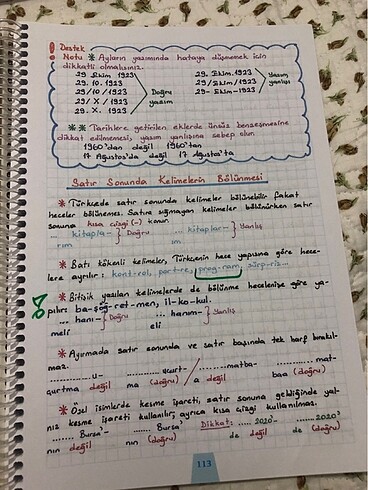 ! Destek
Notu * Ayların yazımında hataya düşmemek için
dikkatli olmalısınız.
29 Ekim 1923
29. 10. 1923
29/10/1923
29/X/1923
29. X. 1923
Doğru
yazım
29. Ekim. 1923
29/Ekim/1923
29-Ekim-1923
Yazım
yanlışı
** Tarihlere getirilen eklerde ünsüz benzeşmesine
dikkat edilmemesi, yazım yanlışına sebep olur.
1960'dan değil 1960'tan
17 Ağustos'da değil 17 Ağustos'ta
Satır Sonunda Kelimelerin Bölünmesi
* Türkçede satır sonunda kelimeler bölünebilir fakat
heceler bölünemez. Satıra sığmayan kelimeler bölünürken satır
sonuna kısa çizgi (-) konur.
... kitapla-
rım
Doğru
... kitaplar-
ım
Yanlış
* Batı kökenli kelimeler, Türkçenin hece yapısına göre hece-
lere ayrılır: kont-rol, port-re, prog-ram, sürp-riz...
* Bitişik yazılan kelimelerde de bölünme hecelenişe göre ya-
pılır: ba-şöğ-ret-men, il-ko-kul.
... hanı-
meli
Doğru
... hanım-
eli
Yanlış
* Ayırmada satır sonunda ve satır başında tek harf bırakıl-
maz.
........ u-
çurtma değil
....... uçurt-
ma (doğru)
...... matba-
a değil
........ mat-
baa (doğru)
* Özel isimlerde kesme işareti, satır sonuna geldiğinde yal-
nız kesme işareti kullanılır, ayrıca kısa çizgi kullanılmaz.
....... Bursa'-
nın değil
....... Bursa'
nın (doğru)
Dikkat: ..... 2020'-
de değil
..... 2020'
de (doğru)
113